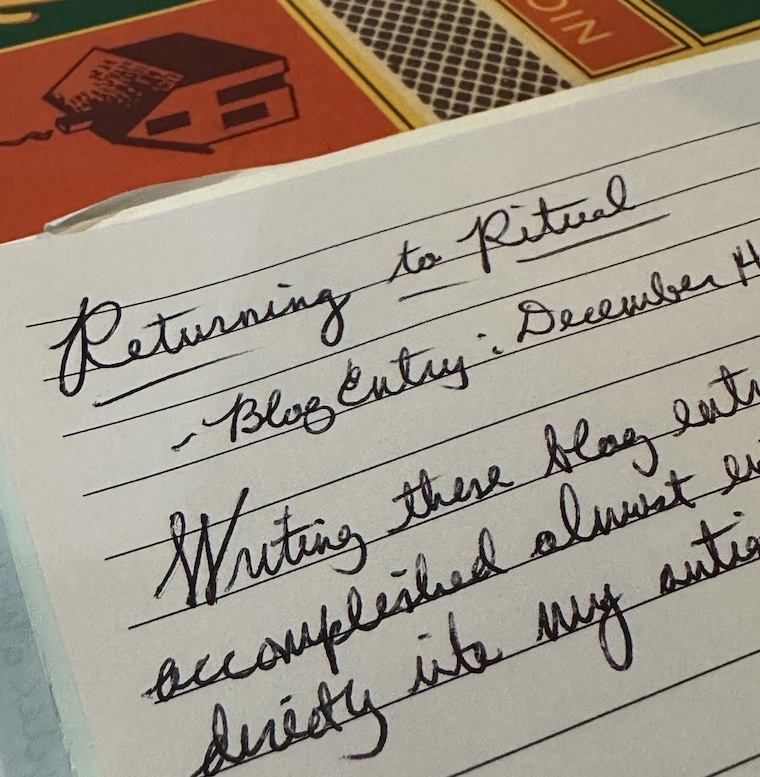 Returning to Ritual
- Blog Entry: December
Writing these blog entr
accomplished almost
directly into my